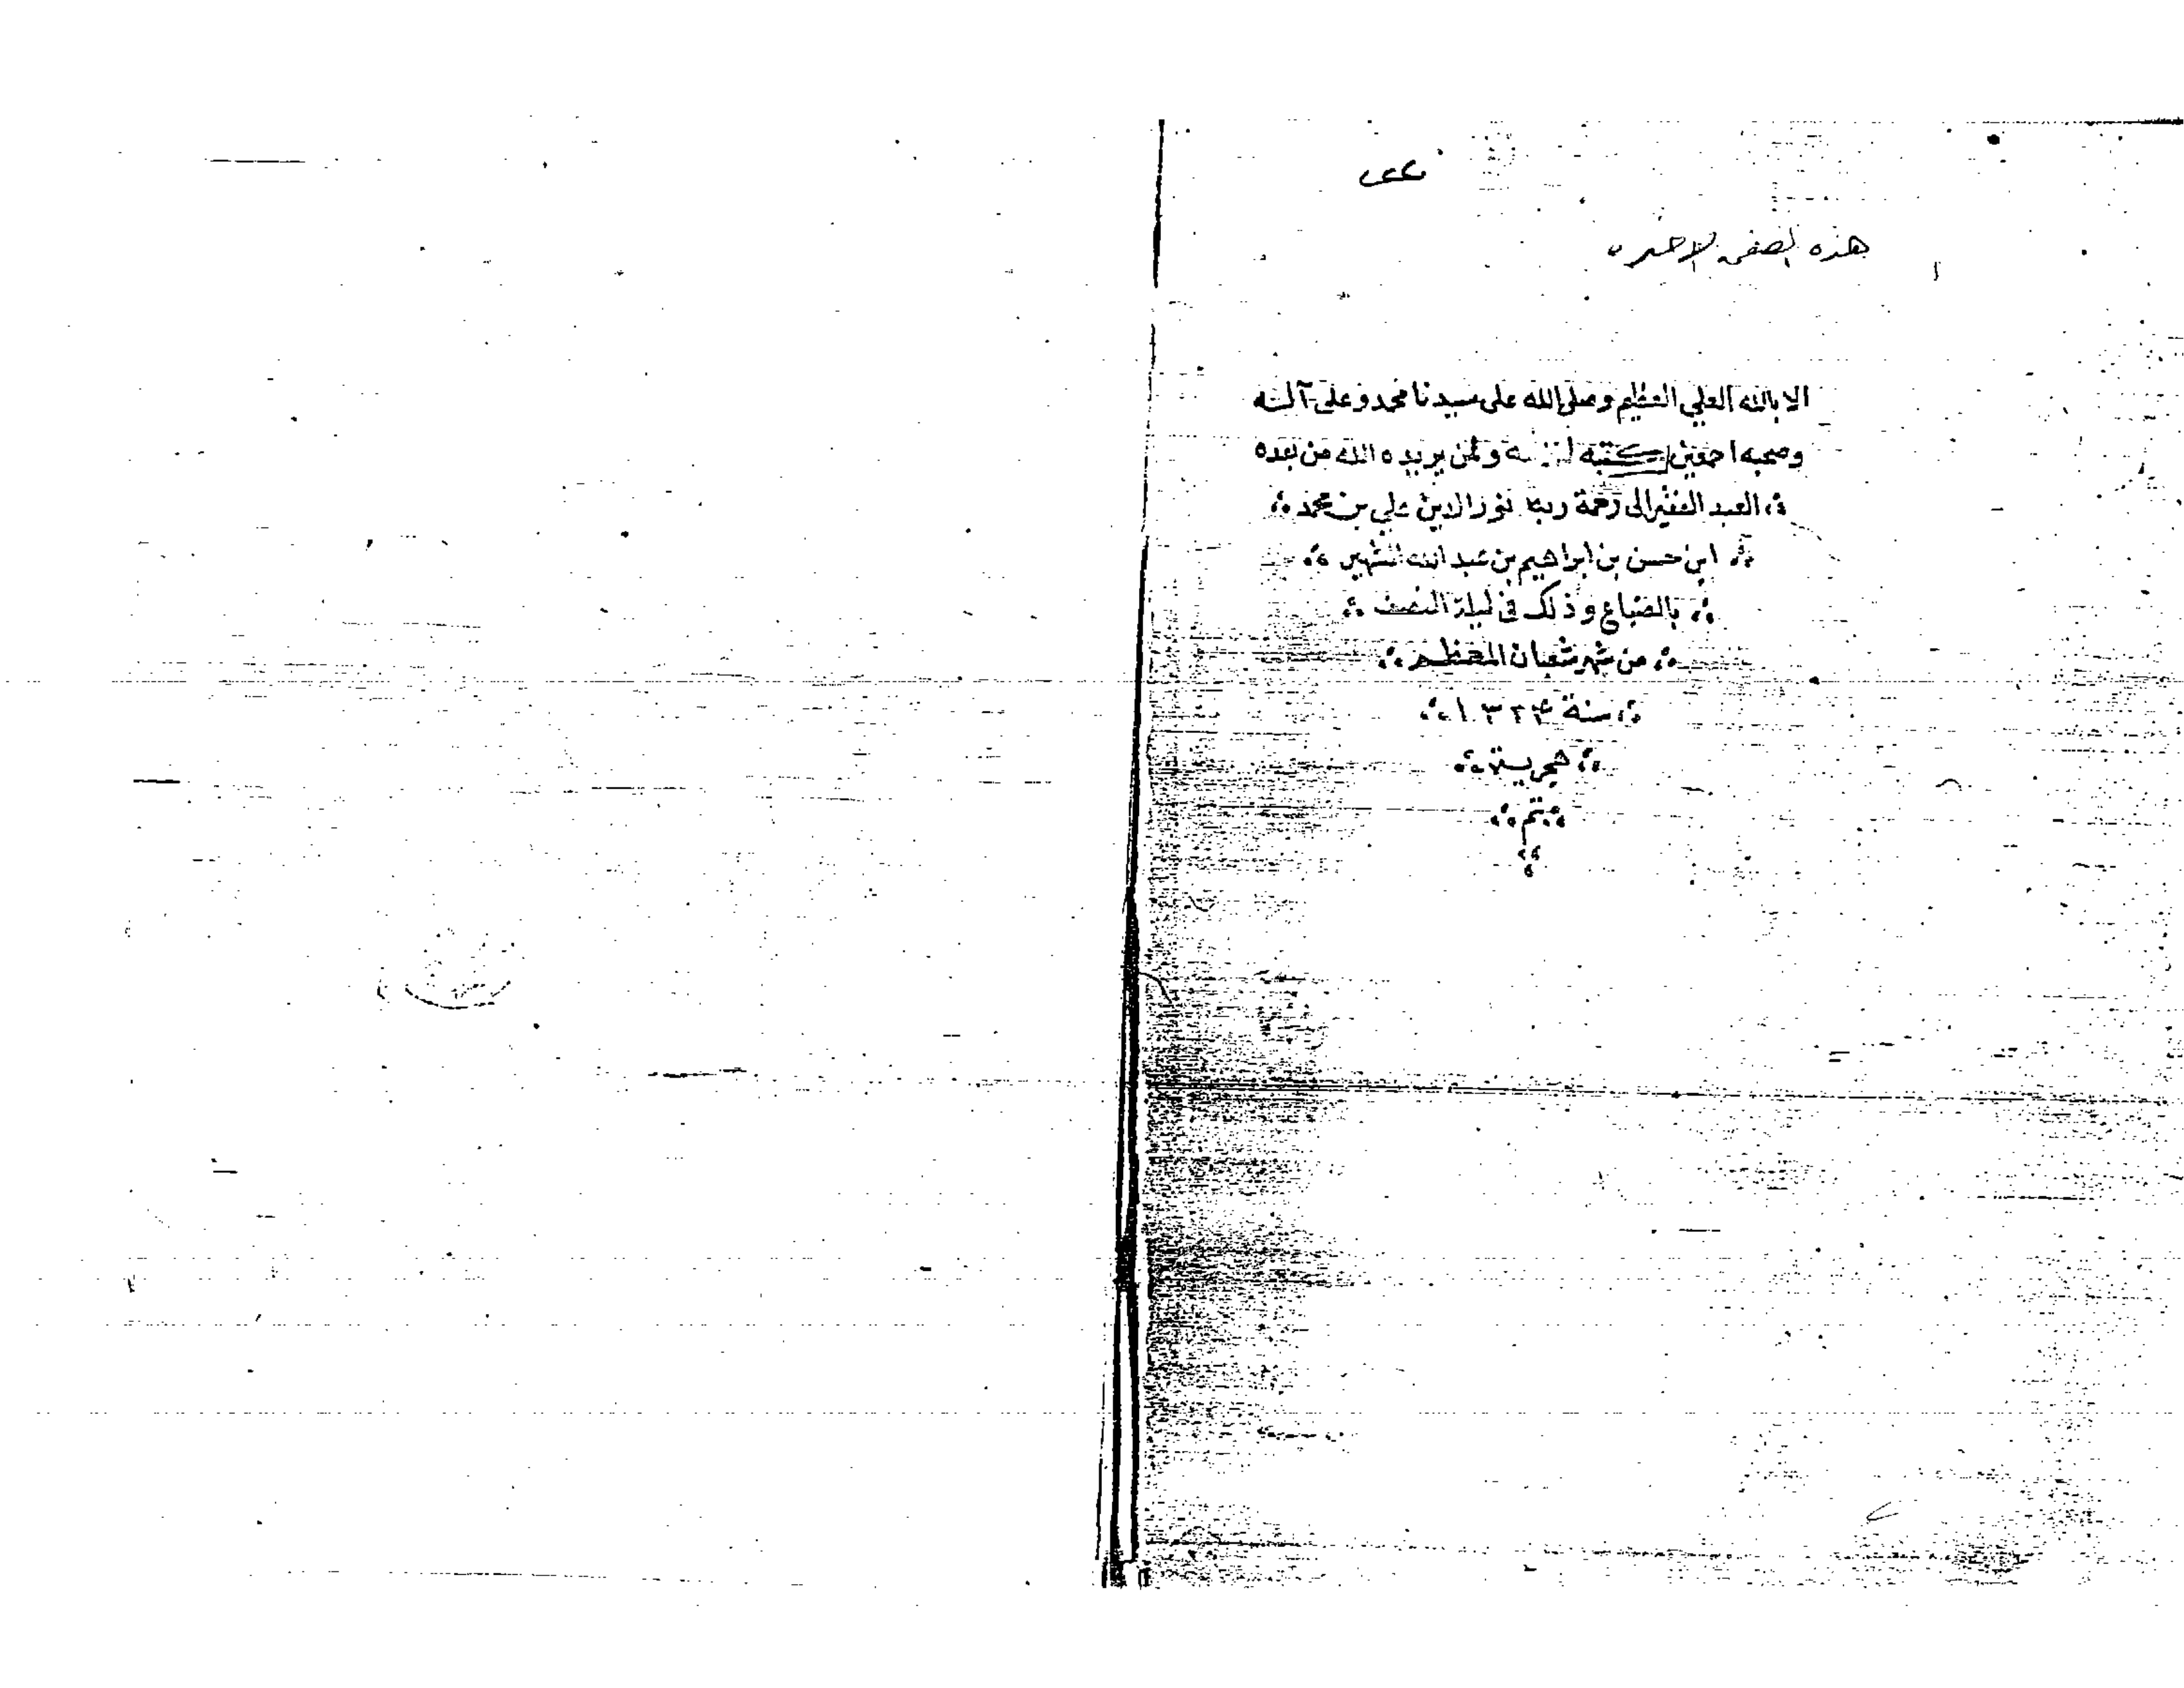 هذه الصفحه الاخيره
الا بالله العلي العظيم وصلى الله على سيدنا محمد وعلى آله
وصحبه اجمعين كتبه لنفسه ولمن يريده الله من بعده
العبد الفقير الى رحمة ربه نور الدين علي بن محمد
ابن حسن بن ابراهيم بن عبد الله الشهير
بالضباع وذلك في ليلة النصف
من شهر شعبان المعظم
سنة ١٣٢٤
هجرية
تم